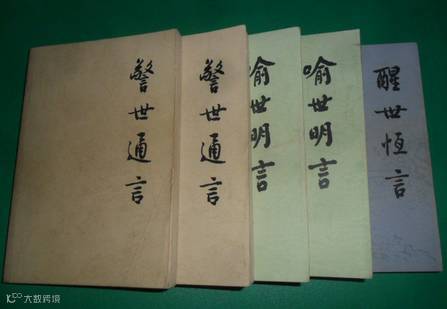 警世通言
警世通言
喻世明言
喻世明言
醒世恒言
大数跨境